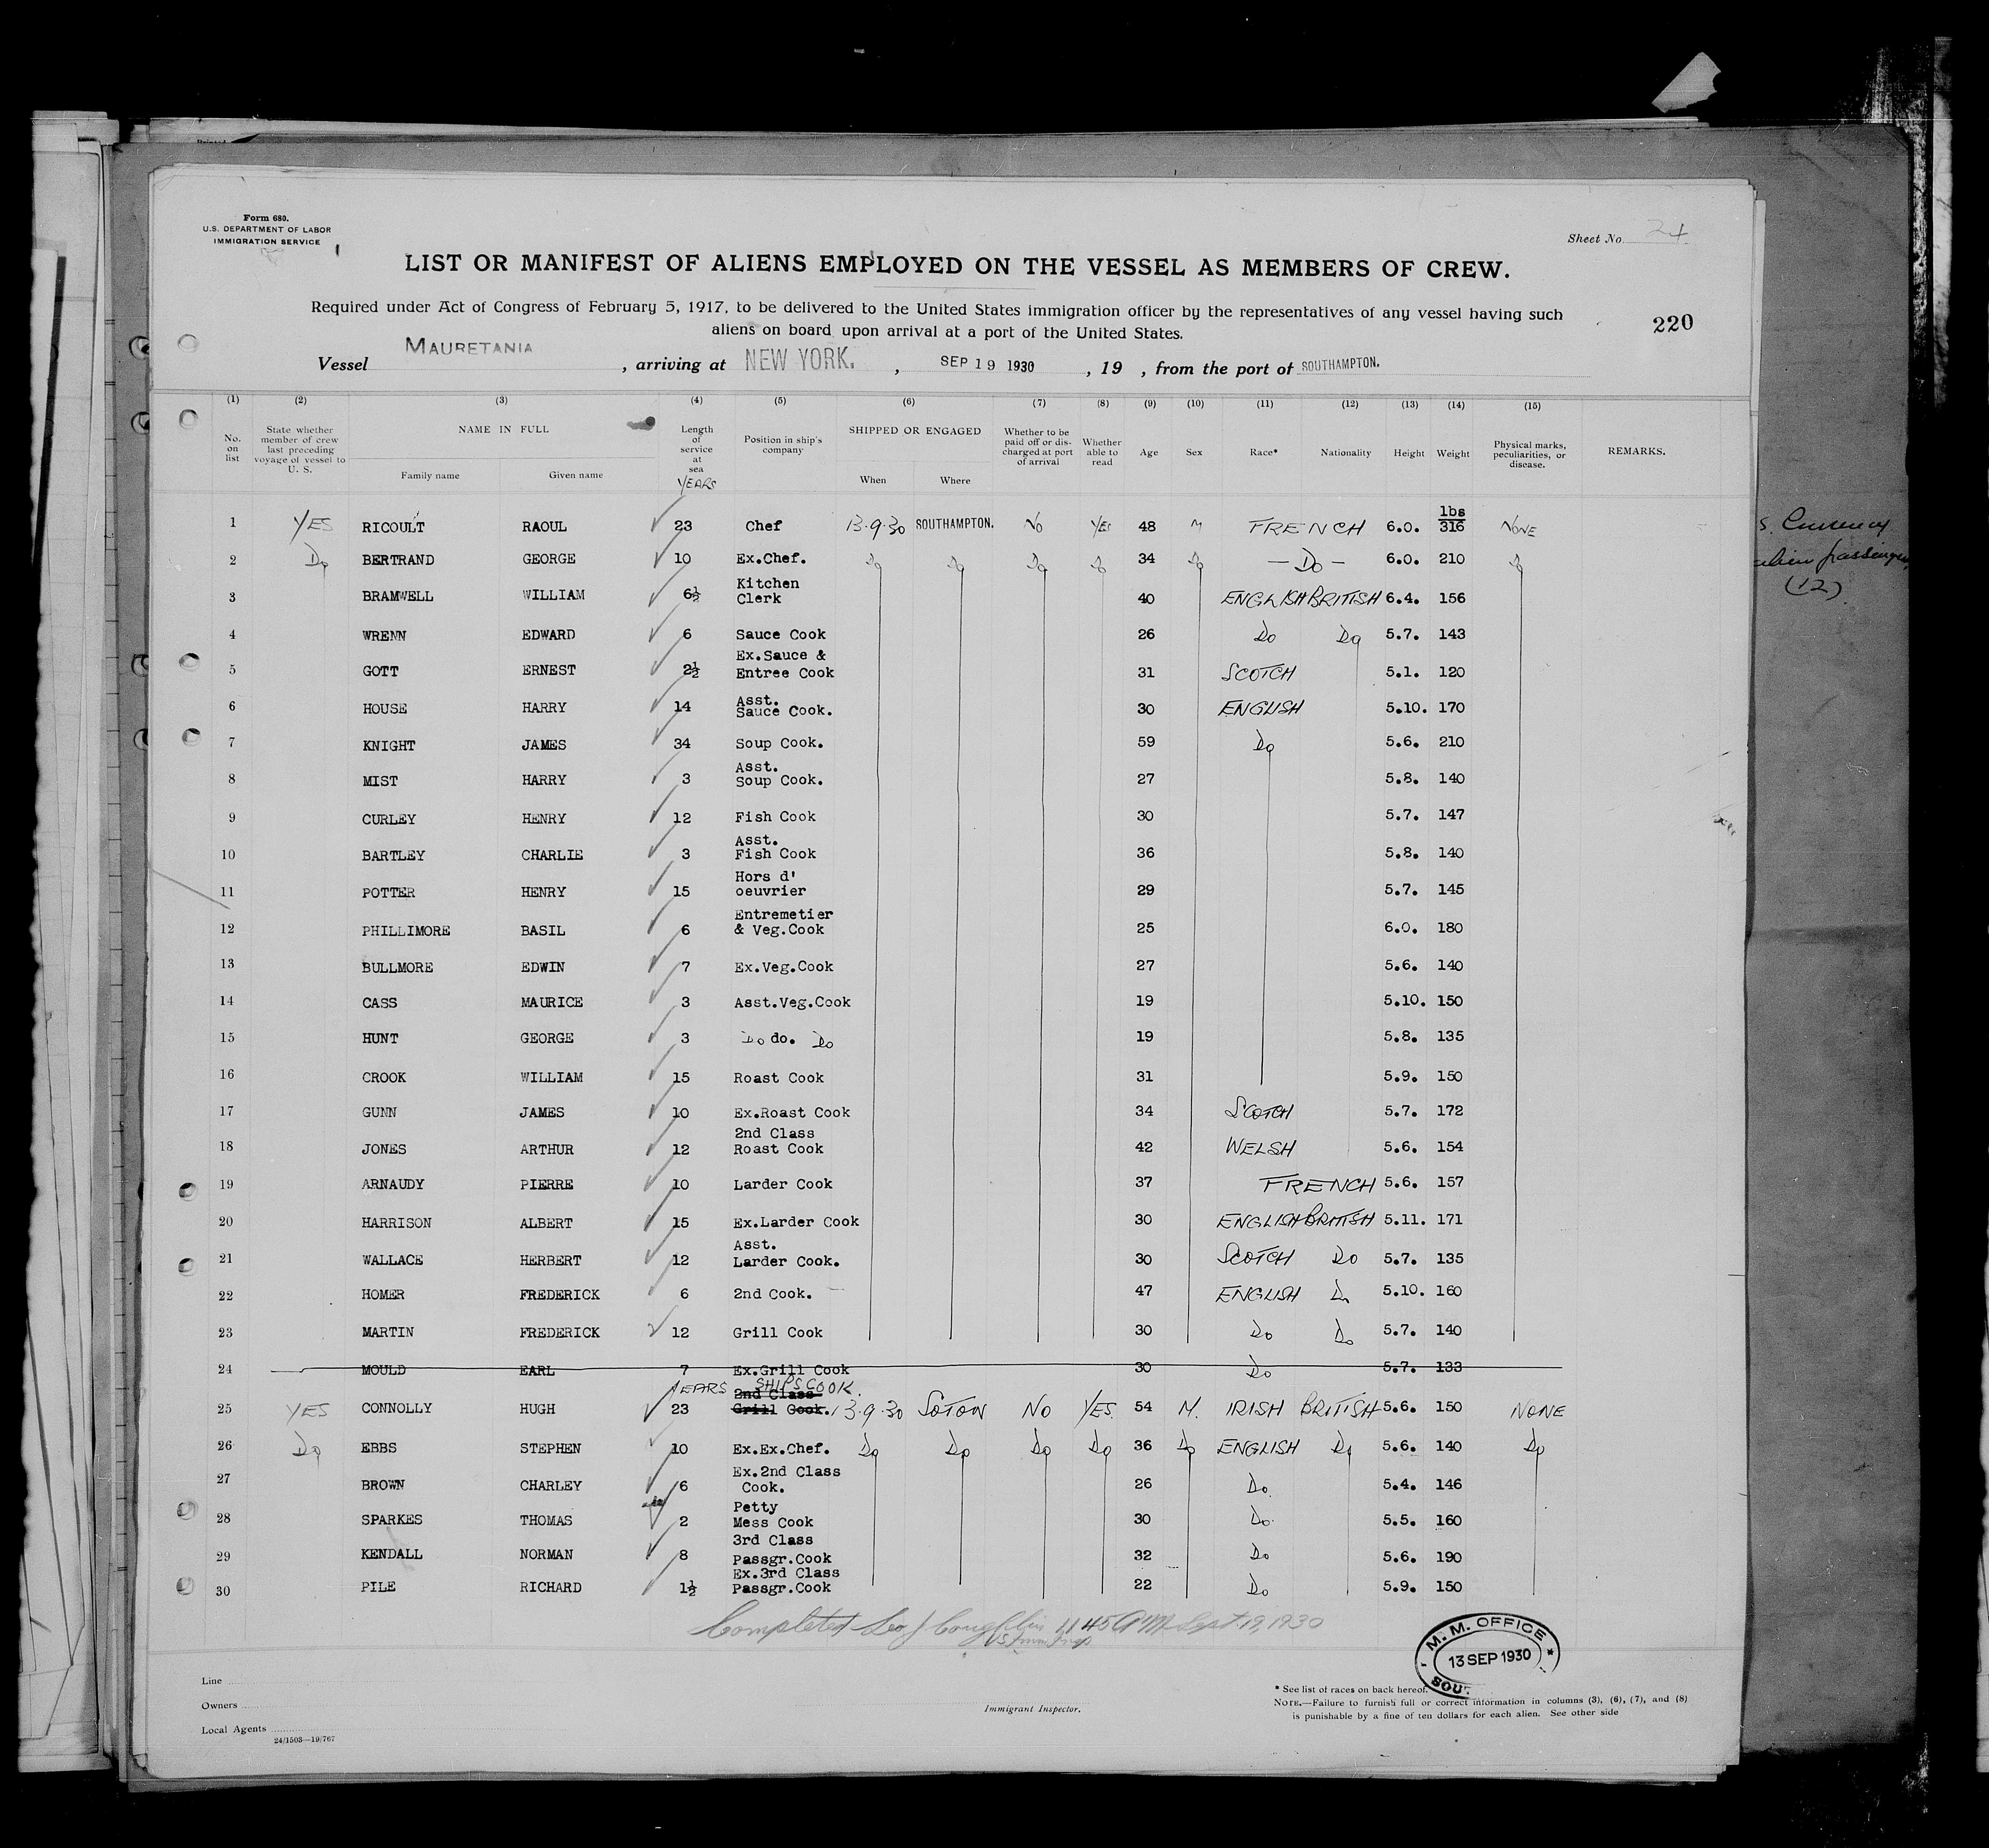 Form 680.
U.S. DEPARTMENT OF LABOR
IMMIGRATION SERVICE
Sheet No. 24
LIST OR MANIFEST OF ALIENS EMPLOYED ON THE VESSEL AS MEMBERS OF CREW.
Required under Act of Congress of February 5, 1917, to be delivered to the United States immigration officer by the representatives of any vessel having such
aliens on board upon arrival at a port of the United States.
220
Vessel MAURETANIA , arriving at NEW YORK. , SEP 19 1930 , 19 , from the port of SOUTHAMPTON.
(1) (2) (3) (4) (5) (6) (7) (8) (9) (10) (11) (12) (13) (14) (15)
No. on list
State whether member of crew last preceding voyage of vessel to U. S.
NAME IN FULL
Family name Given name
Length of service at sea
YEARS
Position in ship's company
SHIPPED OR ENGAGED
When Where
Whether to be paid off or discharged at port of arrival
Whether able to read
Age
Sex
Race*
Nationality
Height
Weight
Physical marks, peculiarities, or disease.
REMARKS.
1 YES RICOULT RAOUL 23 Chef 13.9.30 SOUTHAMPTON. NO YES 48 M FRENCH 6.0. lbs 316 NONE
2 Do BERTRAND GEORGE 10 Ex.Chef. Do Do Do Do 34 Do — Do — 6.0. 210 Do
3 BRAMWELL WILLIAM 6½ Kitchen Clerk 40 ENGLISH BRITISH 6.4. 156
4 WRENN EDWARD 6 Sauce Cook 26 Do Do 5.7. 143
5 GOTT ERNEST 2½ Ex.Sauce & Entree Cook 31 SCOTCH 5.1. 120
6 HOUSE HARRY 14 Asst. Sauce Cook. 30 ENGLISH 5.10. 170
7 KNIGHT JAMES 34 Soup Cook. 59 Do 5.6. 210
8 MIST HARRY 3 Asst. Soup Cook. 27 5.8. 140
9 CURLEY HENRY 12 Fish Cook 30 5.7. 147
10 BARTLEY CHARLIE 3 Asst. Fish Cook 36 5.8. 140
11 POTTER HENRY 15 Hors d' oeuvrier 29 5.7. 145
12 PHILLIMORE BASIL 6 Entremetier & Veg.Cook 25 6.0. 180
13 BULLMORE EDWIN 7 Ex.Veg.Cook 27 5.6. 140
14 CASS MAURICE 3 Asst.Veg.Cook 19 5.10. 150
15 HUNT GEORGE 3 Do do. Do 19 5.8. 135
16 CROOK WILLIAM 15 Roast Cook 31 5.9. 150
17 GUNN JAMES 10 Ex.Roast Cook 34 SCOTCH 5.7. 172
18 JONES ARTHUR 12 2nd Class Roast Cook 42 WELSH 5.6. 154
19 ARNAUDY PIERRE 10 Larder Cook 37 FRENCH 5.6. 157
20 HARRISON ALBERT 15 Ex.Larder Cook 30 ENGLISH BRITISH 5.11. 171
21 WALLACE HERBERT 12 Asst. Larder Cook. 30 SCOTCH Do 5.7. 135
22 HOMER FREDERICK 6 2nd Cook. 47 ENGLISH Do 5.10. 160
23 MARTIN FREDERICK 12 Grill Cook 30 Do Do 5.7. 140
24 MOULD EARL 7 Ex.Grill Cook 30 Do 5.7. 133
25 YES CONNOLLY HUGH YEARS 23 SHIPS COOK. 2nd Class Grill Cook. 13.9.30 SOTON NO YES. 54 M. IRISH BRITISH 5.6. 150 NONE
26 Do EBBS STEPHEN 10 Ex.Ex.Chef. Do Do Do Do 36 Do ENGLISH Do 5.6. 140 Do
27 BROWN CHARLEY 6 Ex.2nd Class Cook. 26 Do. 5.4. 146
28 SPARKES THOMAS 2 Petty Mess Cook 30 Do. 5.5. 160
29 KENDALL NORMAN 8 3rd Class Passgr.Cook 32 Do 5.6. 190
30 PILE RICHARD 1½ Ex.3rd Class Passgr.Cook 22 Do 5.9. 150
Completed Leo J Coughlin 11 45 AM Sept 19, 1930
US Immi Insp
Line
Owners
Local Agents
24/1503—19/767
Immigrant Inspector.
M. M. OFFICE
13 SEP 1930
SOU
* See list of races on back hereof.
NOTE.—Failure to furnish full or correct information in columns (3), (6), (7), and (8)
is punishable by a fine of ten dollars for each alien. See other side
s. Currency
alien passenger
(12)